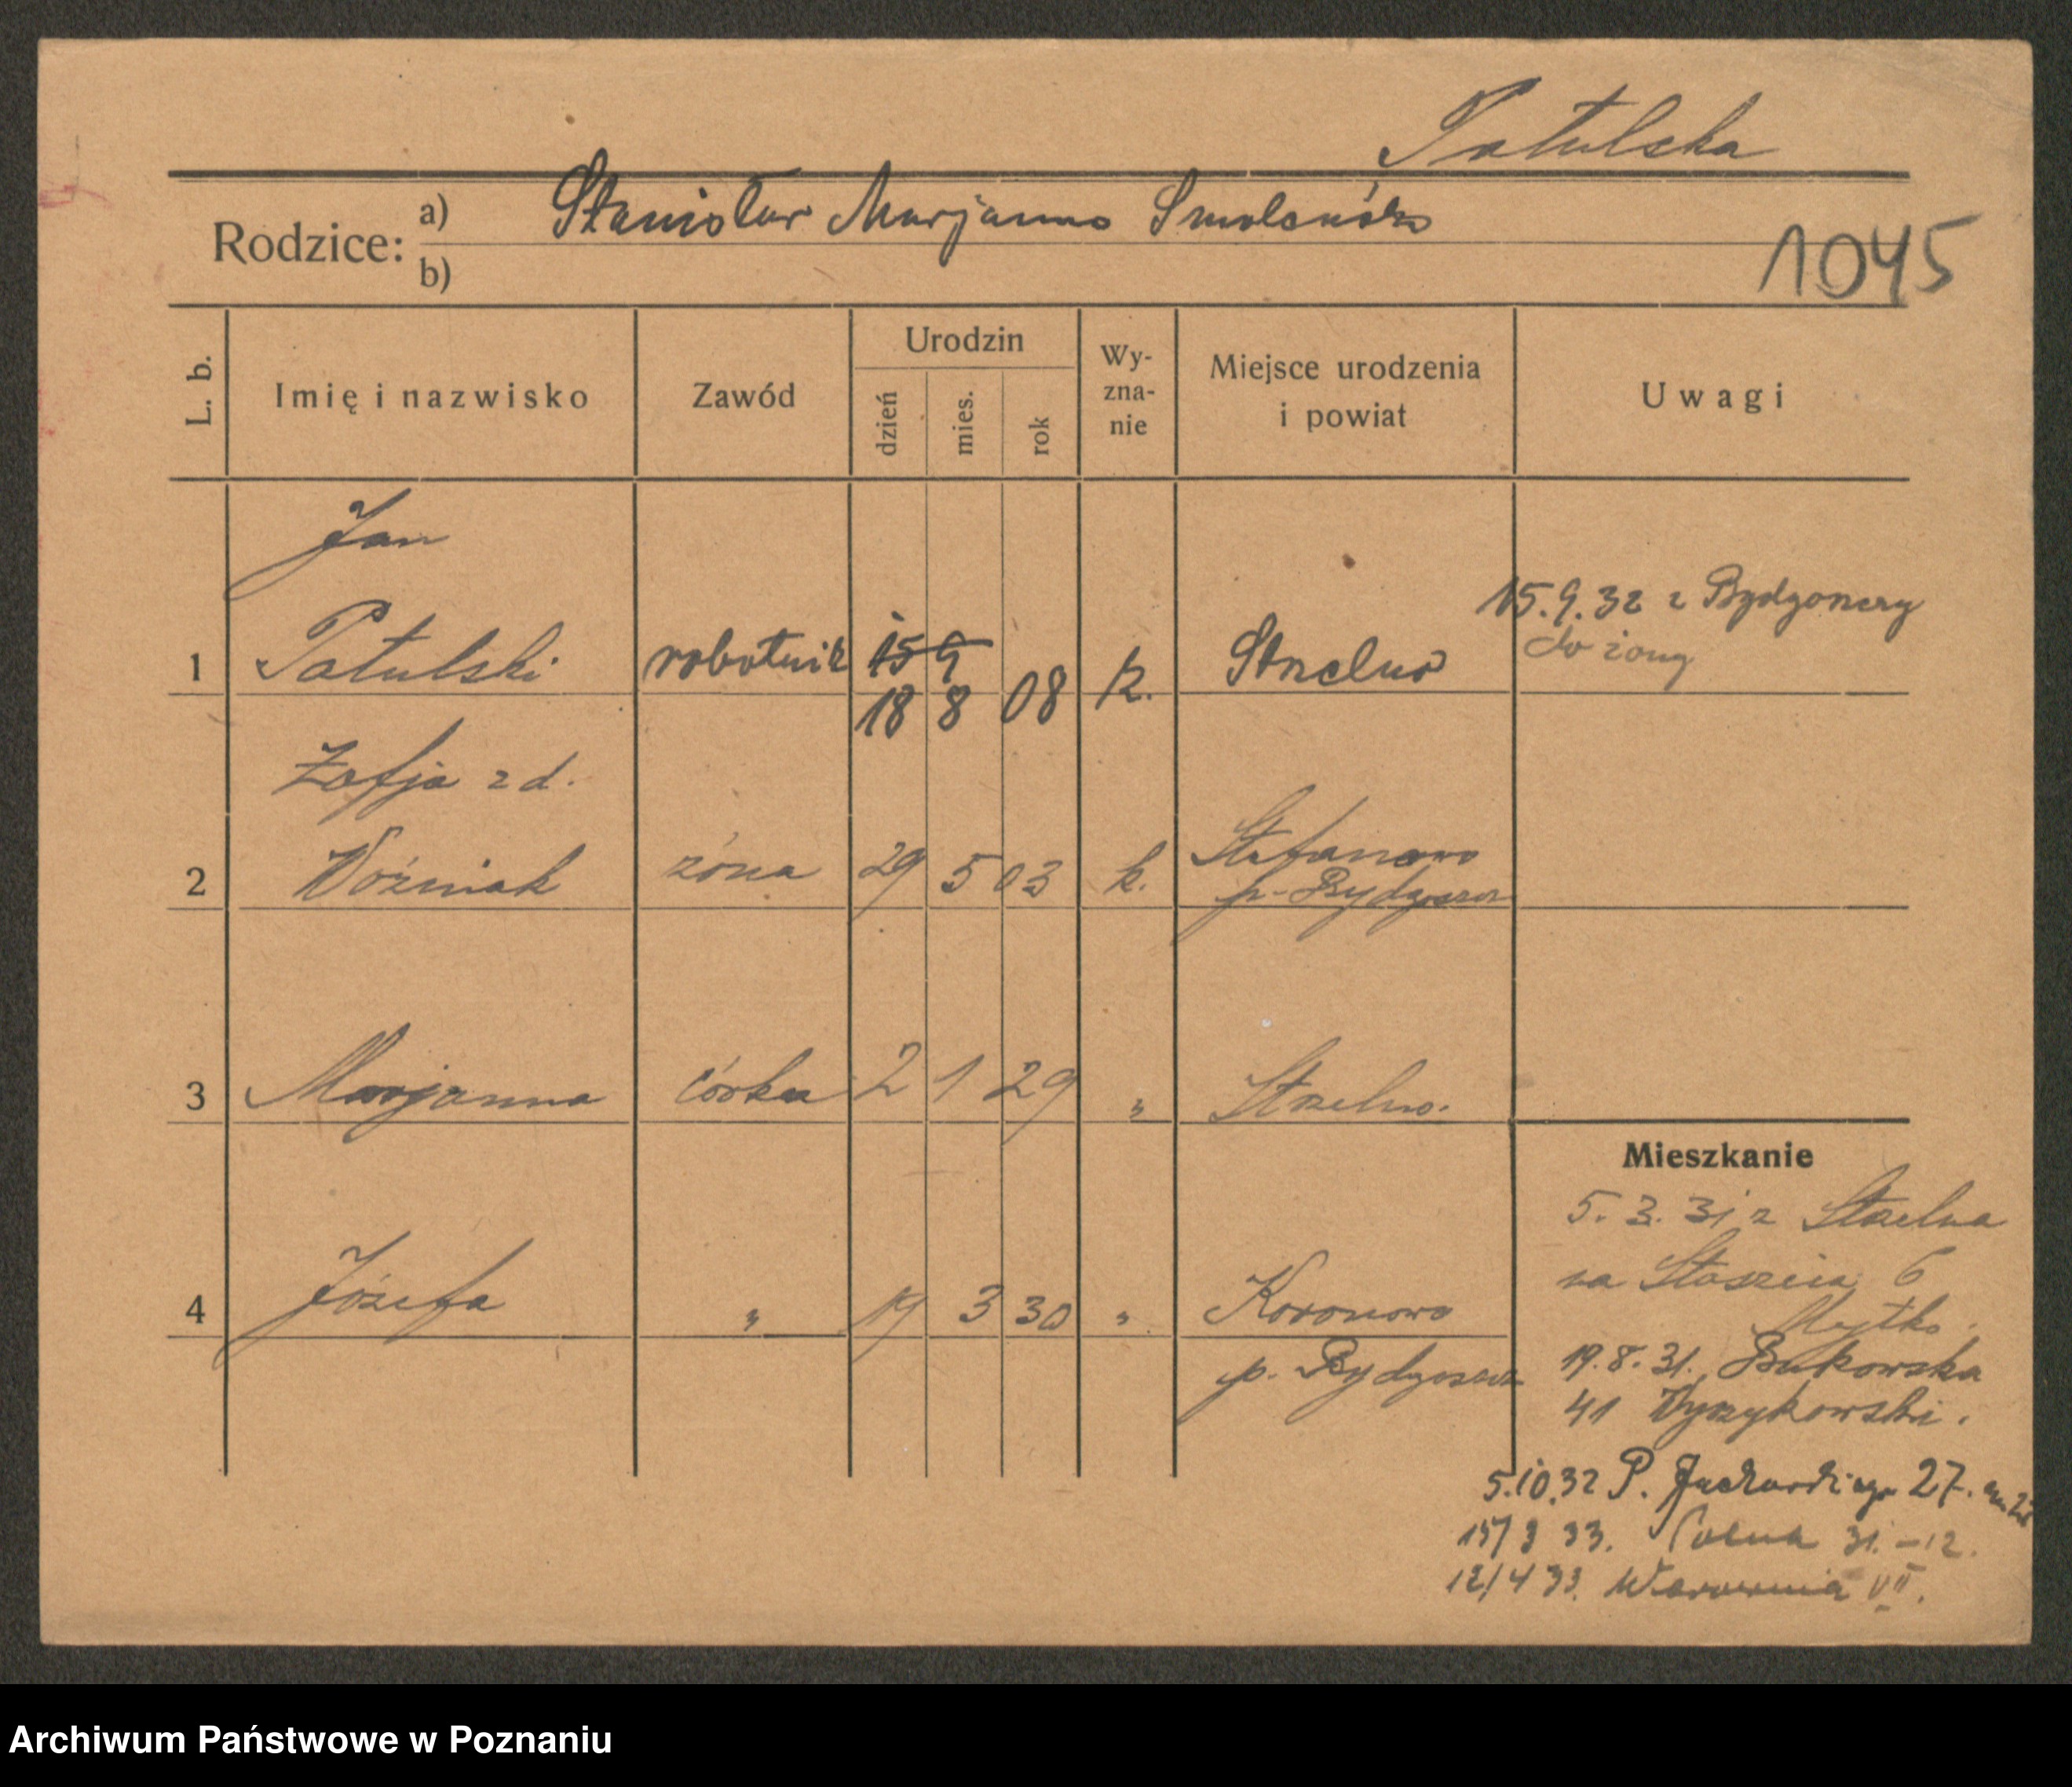 Patulska
Rodzice: a) Stanisław Marjanna Smoleńska
b)
1045
L. b. Imię i nazwisko Zawód Urodzin dzień mies. rok Wy-zna-nie Miejsce urodzenia i powiat Uwagi
Jan
1 Patulski robotnik 15 9 k. Strzelno
18 8 08
15.9.32 z Bydgoszczy
do żony
Zofja z d.
2 Woźniak żona 29 5 03 k. Stefanowo
p. Bydgoszcz
3 Marjanna córka 2 1 29 " Strzelno.
4 Józefa " 19 3 30 " Koronowo
p. Bydgoszcz
Mieszkanie
5. 3. 31 z Strzelna
na Staszica 6
19.8.31. Bukowska
41 Wyrzykowski.
5.10.32 P. 27.
33. Polna 31. - 12.
12/4 33. VII.
Archiwum Państwowe w Poznaniu